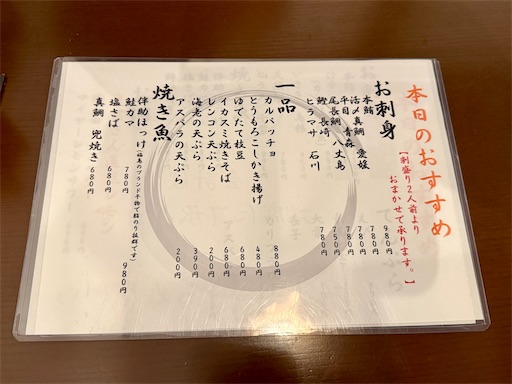 本日のおすすめ
【刺盛り2人前より
おまかせで承ります。】
お刺身
本鮪 980円
活〆真鯛 愛媛 780円
平目 青森 780円
尾長鯛 八丈島 780円
鰹 長崎 750円
ヒラマサ 石川 780円
一品
カルパッチョ 880円
とうもろこしかき揚げ 480円
ゆでたて枝豆 680円
イカスミ焼きそば 680円
レンコン天ぷら 200円
海老の天ぷら 390円
アスパラの天ぷら 200円
焼き魚
伴助ほっけ(福島のブランド干物で脂のり抜群です) 980円
鮭カマ 780円
塩さば 680円
真鯛 兜焼き 680円